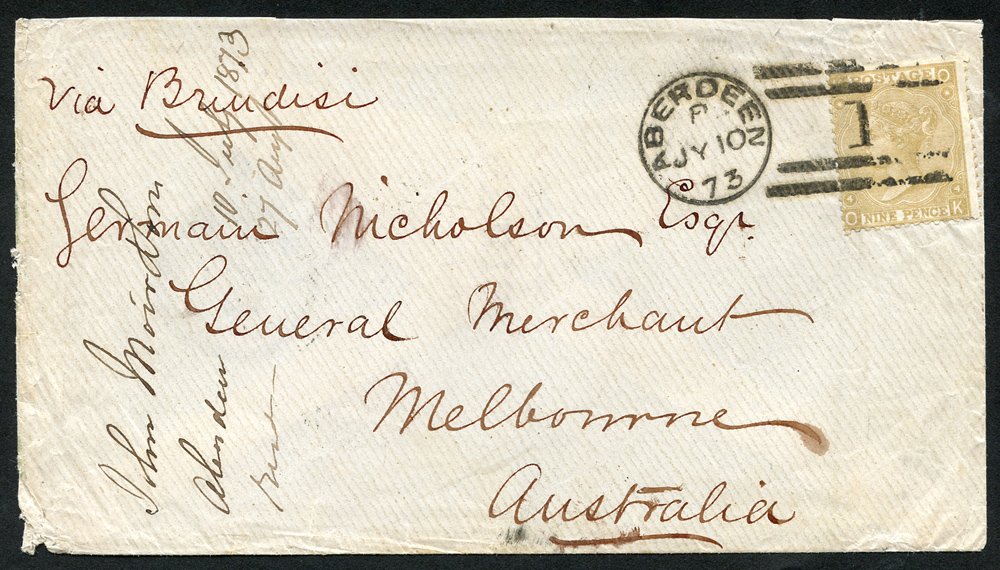 Via Brindisi
ABERDEEN
JY 10
73
1
POSTAGE
O O
4 4
O NINE PENCE K
Germain Nicholson Esqr.
General Merchant
Melbourne
Australia
John Moirdom
Aberdeen 10 July 1873
27 Aug